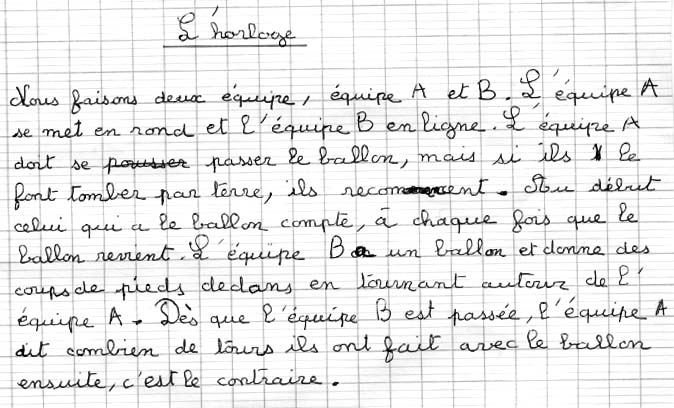 L'horloge
Nous faisons deux équipe, équipe A et B. L'équipe A
se met en rond et l'équipe B en ligne. L'équipe A
doit se pousser passer le ballon, mais si ils le
font tomber par terre, ils recommencent. Au début
celui qui a le ballon compte, à chaque fois que le
ballon revient. L'équipe B a un ballon et donne des
coups de pieds dedans en tournant autour de l'
équipe A. Dès que l'équipe B est passée, l'équipe A
dit combien de tours ils ont fait avec le ballon
ensuite, c'est le contraire.